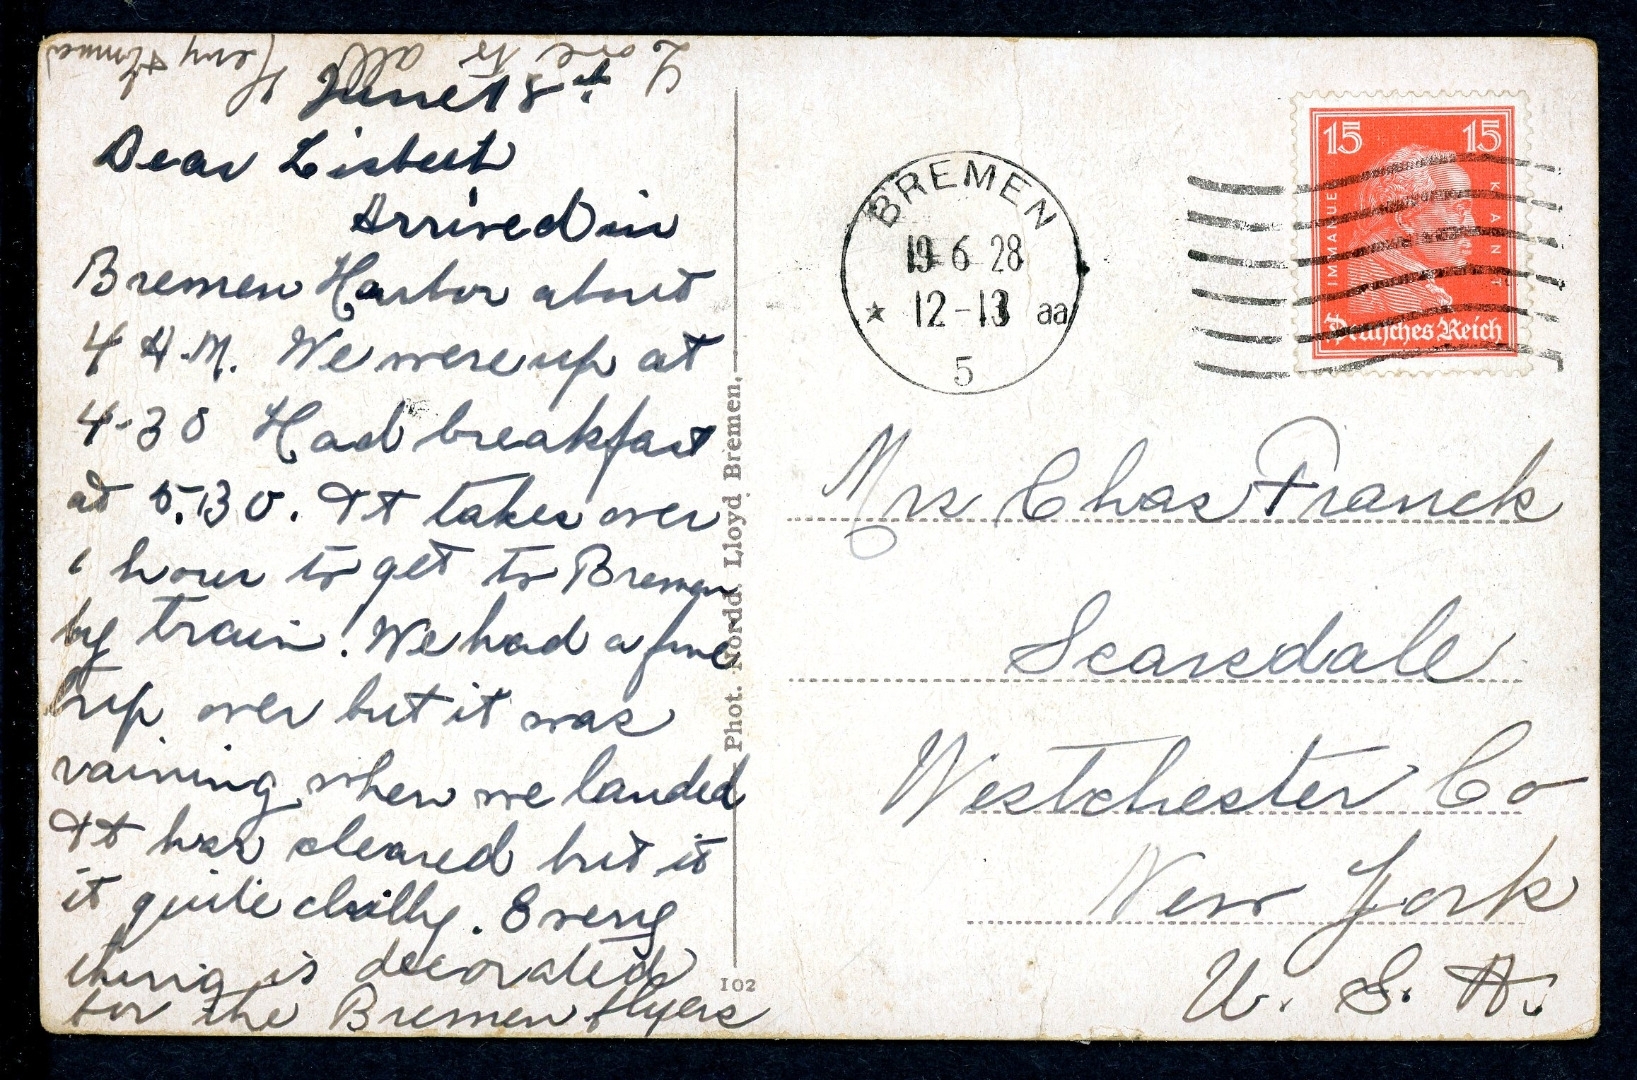 June 18th
Dear Lisbeth
Arrived in
Bremen Harbor about
4 A.M. We were up at
4-30 Had breakfast
at 5.30. It takes over
1 hour to get to Bremen
by train. We had a fine
trip over but it was
raining when we landed
It has cleared but it
it quite chilly. Every
thing is decorated
for the Bremen flyers
Love to all
Phot. Nordd. Lloyd Bremen.
102
BREMEN
19 6 28
12-13 aa
5
15 15
IMMANUEL KANT
Deutsches Reich
Mrs Chas Franck
Scarsdale
Westchester Co
New York
U. S. A.